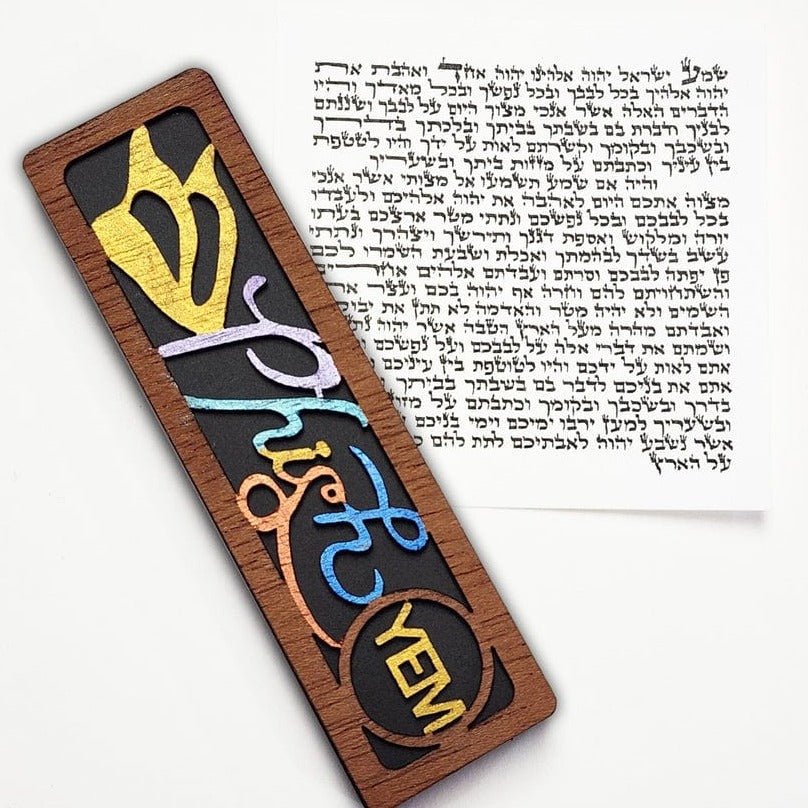 ש
Phish
YEM
שמע ישראל יהוה אלהינו יהוה אחד ואהבת את
יהוה אלהיך בכל לבבך ובכל נפשך ובכל מאדך והיו
הדברים האלה אשר אנכי מצוך היום על לבבך ושננתם
לבניך ודברת בם בשבתך בביתך ובלכתך בדרך
ובשכבך ובקומך וקשרתם לאות על ידך והיו לטטפת
בין עיניך וכתבתם על מזזות ביתך ובשעריך
והיה אם שמע תשמעו אל מצותי אשר אנכי
מצוה אתכם היום לאהבה את יהוה אלהיכם ולעבדו
בכל לבבכם ובכל נפשכם ונתתי מטר ארצכם בעתו
יורה ומלקוש ואספת דגנך ותירשך ויצהרך ונתתי
עשב בשדך לבהמתך ואכלת ושבעת השמרו לכם
פן יפתה לבבכם וסרתם ועבדתם אלהים אחרים
והשתחויתם להם וחרה אף יהוה בכם ועצר את
השמים ולא יהיה מטר והאדמה לא תתן את
ואבדתם מהרה מעל הארץ הטבה אשר יהוה
ושמתם את דברי אלה על לבבכם ועל נפשכם
אתם לאות על ידכם והיו לטוטפת בין עיניכם
אתם את בניכם לדבר בם בשבתך בביתך
בדרך ובשכבך ובקומך וכתבתם על
ובשעריך למען ירבו ימיכם וימי בניכם
אשר נשבע יהוה לאבתיכם לתת להם
על הארץ